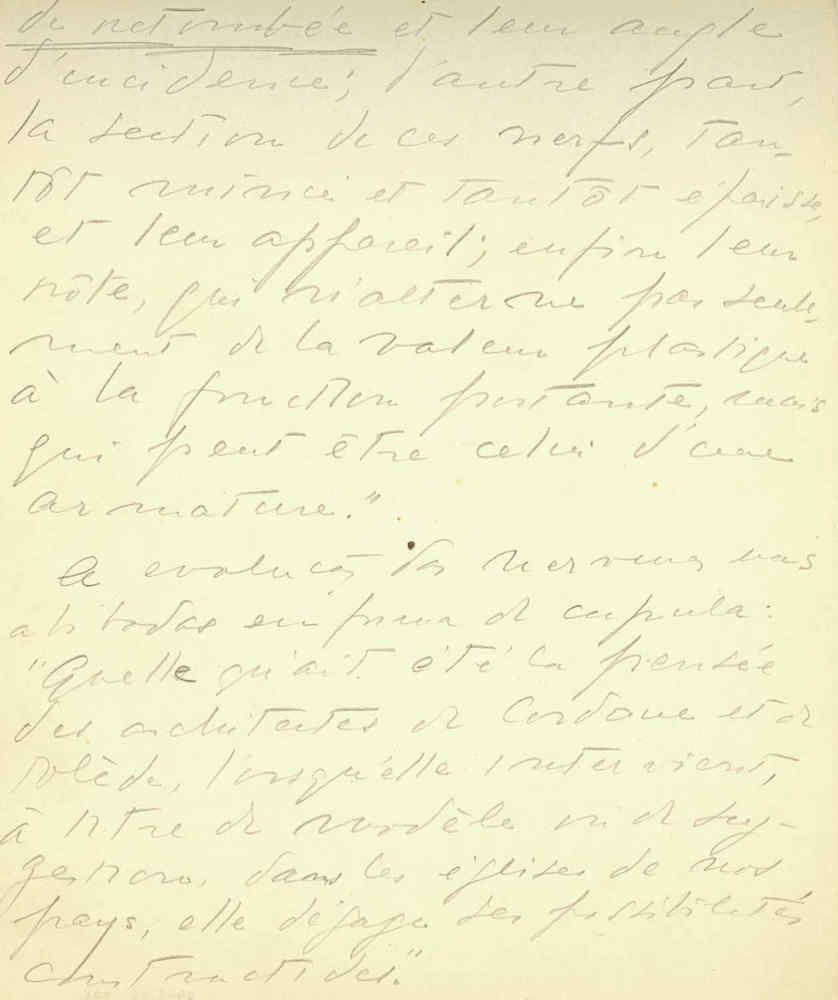 de retombée et leur angle
d'incidence; d'autre part,
la section de ces nerfs, tan-
tôt mince et tantôt épaisse,
et leur appareil; enfin leur
rôle, qui n'alterne pas seule-
ment de la valeur plastique
à la fonction portante, mais
qui peut être celui d'une
armature."
A evolução das nervuras nas
abóbadas em forma de cupula:
"Quelle qu'ait été la pensée
des architectes de Cordoue et de
Tolède, lorsqu'elle intervient,
à titre de modèle ou de sug-
gestion, dans les églises de nos
pays, elle dégage ses possibilités
constructives."